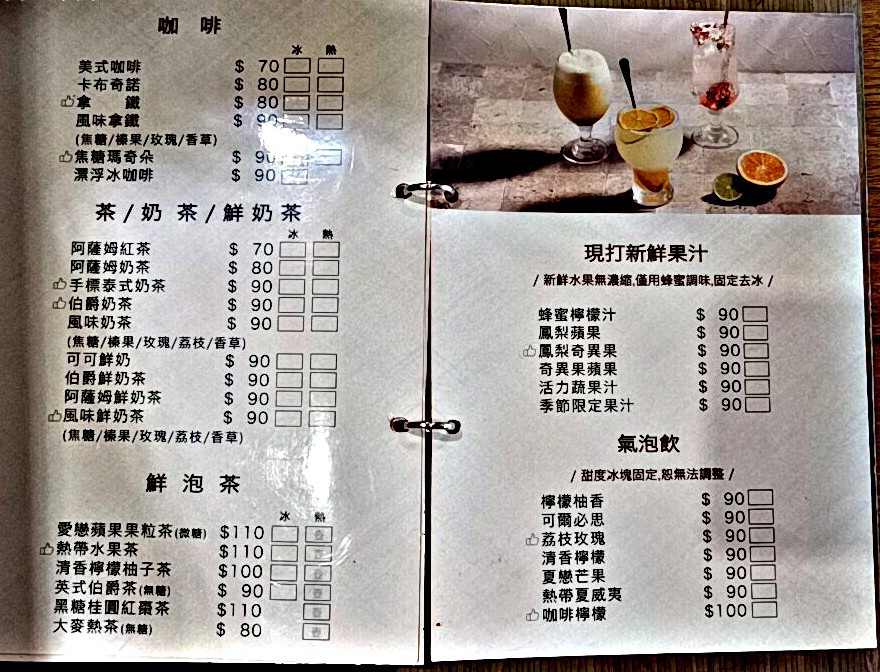 咖 啡
冰 熱
美式咖啡 $ 70
卡布奇諾 $ 80
拿 鐵 $ 80
風味拿鐵 $ 90
(焦糖/榛果/玫瑰/香草)
焦糖瑪奇朵 $ 90
漂浮冰咖啡 $ 90
茶/奶 茶/鮮奶茶
冰 熱
阿薩姆紅茶 $ 70
阿薩姆奶茶 $ 80
手標泰式奶茶 $ 90
伯爵奶茶 $ 90
風味奶茶 $ 90
(焦糖/榛果/玫瑰/荔枝/香草)
可可鮮奶 $ 90
伯爵鮮奶茶 $ 90
阿薩姆鮮奶茶 $ 90
風味鮮奶茶 $ 90
(焦糖/榛果/玫瑰/荔枝/香草)
鮮 泡 茶
冰 熱
愛戀蘋果果粒茶(微糖) $110 壺
熱帶水果茶 $110 壺
清香檸檬柚子茶 $100 壺
英式伯爵茶(無糖) $ 90 壺
黑糖桂圓紅棗茶 $110 壺
大麥熱茶(無糖) $ 80 壺
現打新鮮果汁
/ 新鮮水果無濃縮,僅用蜂蜜調味,固定去冰 /
蜂蜜檸檬汁 $ 90
鳳梨蘋果 $ 90
鳳梨奇異果 $ 90
奇異果蘋果 $ 90
活力蔬果汁 $ 90
季節限定果汁 $ 90
氣泡飲
/ 甜度冰塊固定,恕無法調整 /
檸檬柚香 $ 90
可爾必思 $ 90
荔枝玫瑰 $ 90
清香檸檬 $ 90
夏戀芒果 $ 90
熱帶夏威夷 $ 90
咖啡檸檬 $100